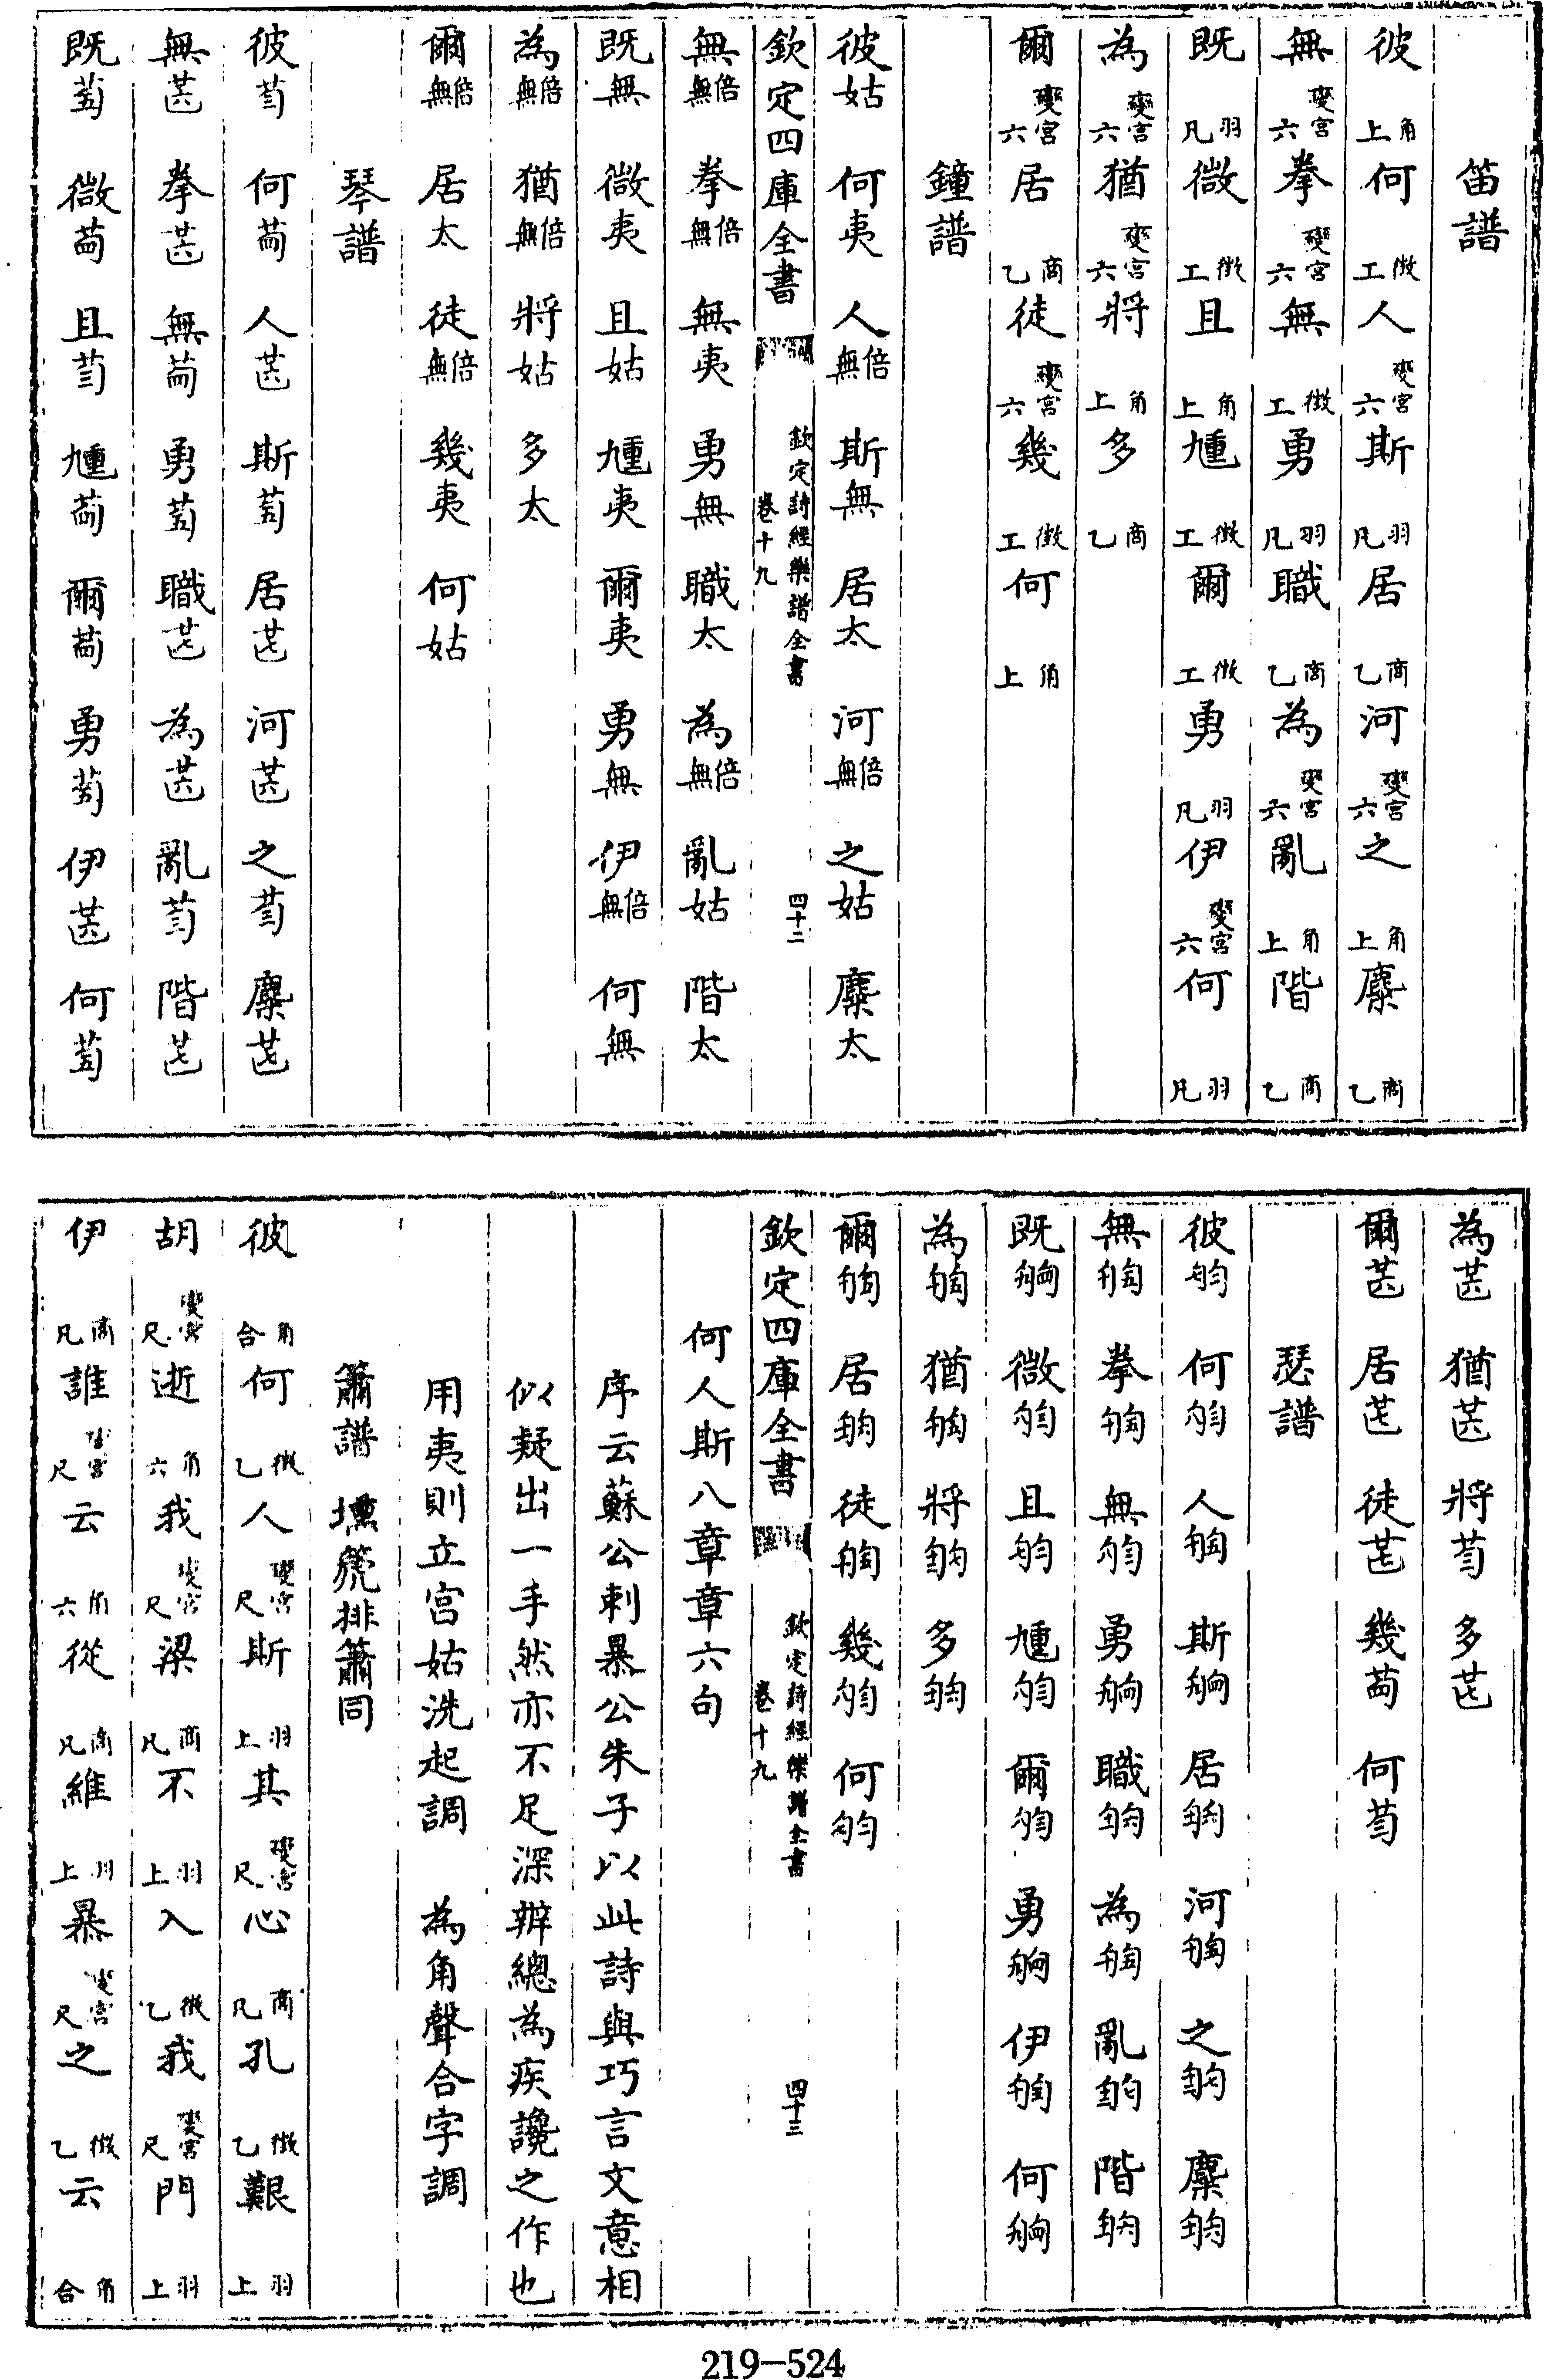 笛譜
彼角上何徵工人變宮六斯羽凡居商乙河變宮六之角上麋商乙
無變宮六拳變宮六無徵工勇羽凡職商乙為變宮六亂角上階商乙
既羽凡微徵工且角上尰徵工爾徵工勇羽凡伊變宮六何羽凡
為變宮六猶變宮六將角上多商乙
爾變宮六居商乙徒變宮六幾徵工何角上
鐘譜
彼姑何夷人倍無斯無居太河倍無之姑麋太
欽定四庫全書 欽定詩經樂譜全書 卷十九 四十二
無倍無拳倍無無夷勇無職太為倍無亂姑階太
既無微夷且姑尰夷爾夷勇無伊倍無何無
為倍無猶倍無將姑多太
爾倍無居太徒倍無幾夷何姑
琴譜
彼 何 人 斯 居 河 之 麋
無 拳 無 勇 職 為 亂 階
既 微 且 尰 爾 勇 伊 何
為 猶 將 多
爾 居 徒 幾 何
瑟譜
彼 何 人 斯 居 河 之 麋
無 拳 無 勇 職 為 亂 階
既 微 且 尰 爾 勇 伊 何
為 猶 將 多
爾 居 徒 幾 何
欽定四庫全書 欽定詩經樂譜全書 卷十九 四十三
何人斯八章章六句
序云蘇公刺暴公朱子以此詩與巧言文意相
似疑出一手然亦不足深辨總為疾讒之作也
用夷則立宮姑洗起調 為角聲合字調
簫譜 壎篪排簫同
彼角合何徵乙人變宮尺斯羽上其變宮尺心商凡孔徵乙艱羽上
胡變宮尺逝角六我變宮尺梁商凡不羽上入徵乙我變宮尺門羽上
伊商凡誰變宮尺云角六從商凡維羽上暴變宮尺之徵乙云角合
219-524